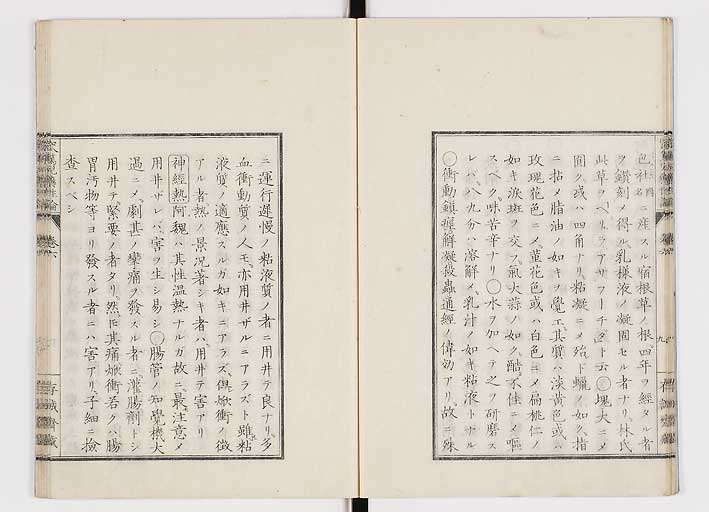 色社國名ニ産スル宿根草ノ根、四年ヲ經タル者
ヲ鑚刻ノ得ル乳樣液ノ凝固セル者ナリ、林氏
此草ヲ「ヘリュラアサフーチダ」ト云○塊大ニメ
圓ク或ハ四角ナリ、粘凝ニメ殆ド蠟ノ如ク、指
ニ拈メ脂油ノ如キヲ覺エ、其質ハ淡黄色或ハ
玫瑰花色ニメ、菫花色或ハ白色ニメ扁桃仁ノ
如キ淚斑ヲ交フ、氣大蒜ノ如ク、酷不佳ニメ嘔
スベク、味苦辛ナリ○水ヲ加ヘテ之ヲ研磨ス
レバ、八九分ハ溶解メ、乳汁ノ如キ粘液トナル
○衝動鎮痙解凝殺蟲通經ノ偉功アリ、故ニ殊
ニ運行遲慢ノ粘液質ノ者ニ用井テ良ナリ、多
血衝動質ノ人モ、亦用井ザルニアラズト雖、粘
液質ノ適應スルガ如キニアラズ、俱焮衝ノ徴
アル者、熱ノ景况著シキ者ハ、用井テ害アリ
神經熱 阿魏ハ其性温熱ナルガ故ニ、最注意メ
用井ザレバ、害ヲ生シ易シ○腸管ノ知覺機大
過ニメ、劇甚ノ攣痛ヲ發スル者ニ、灌腸劑トシ
用井テ緊要ノ者タリ、然𪜈其痛焮衝若クハ腸
胃汚物等ヨリ發スル者ニハ害アリ、子細ニ撿
査スベシ